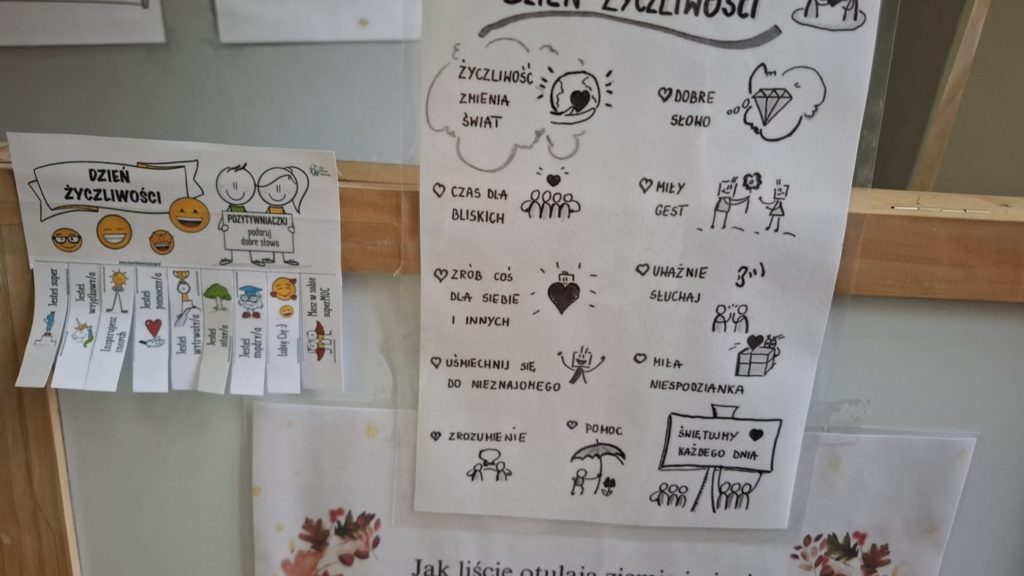 DZIEŃ ŻYCZLIWOŚCI
ŻYCZLIWOŚĆ
ZMIENIA
ŚWIAT
DOBRE
SŁOWO
CZAS DLA
BLISKICH
MIŁY
GEST
ZRÓB COŚ
DLA SIEBIE
I INNYCH
UWAŻNIE
SŁUCHAJ
UŚMIECHNIJ SIĘ
DO NIEZNAJOMEGO
MIŁA
NIESPODZIANKA
ZROZUMIENIE
POMOC
ŚWIĘTUJMY
KAŻDEGO DNIA
DZIEŃ
ŻYCZLIWOŚCI
POZYTYWNIACZKI
podaruj
dobre słowo
Jesteś super
Jesteś
wyjątkowy/a
Inspirujesz
innych
Jesteś
pomocny/a
Jesteś
wytrwały/a
Jesteś
silny/a
Jesteś
mądry/a
Lubię Cię :)
Masz w sobie
superMOC
Jak liście otulają ziemię